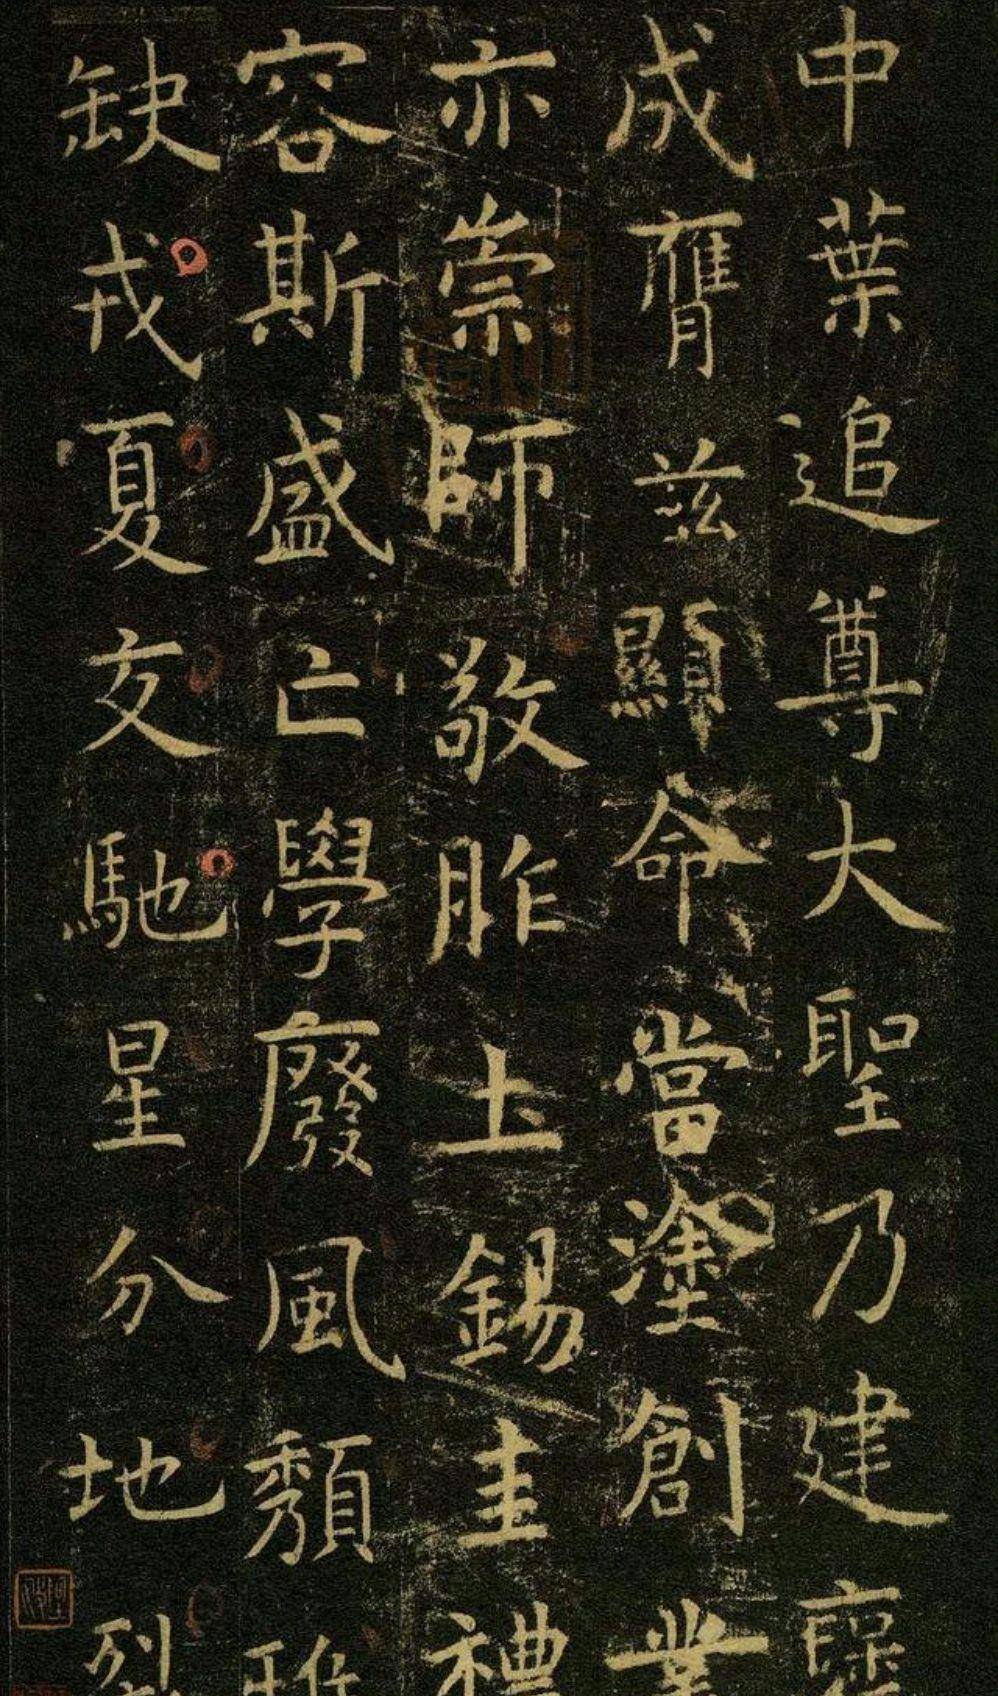 中葉追尊大聖乃建褒
成膺兹顯命當塗創業
亦崇師敬胙土錫圭禮
容斯盛亡學廢風頹雅
缺戎夏交馳星分地裂